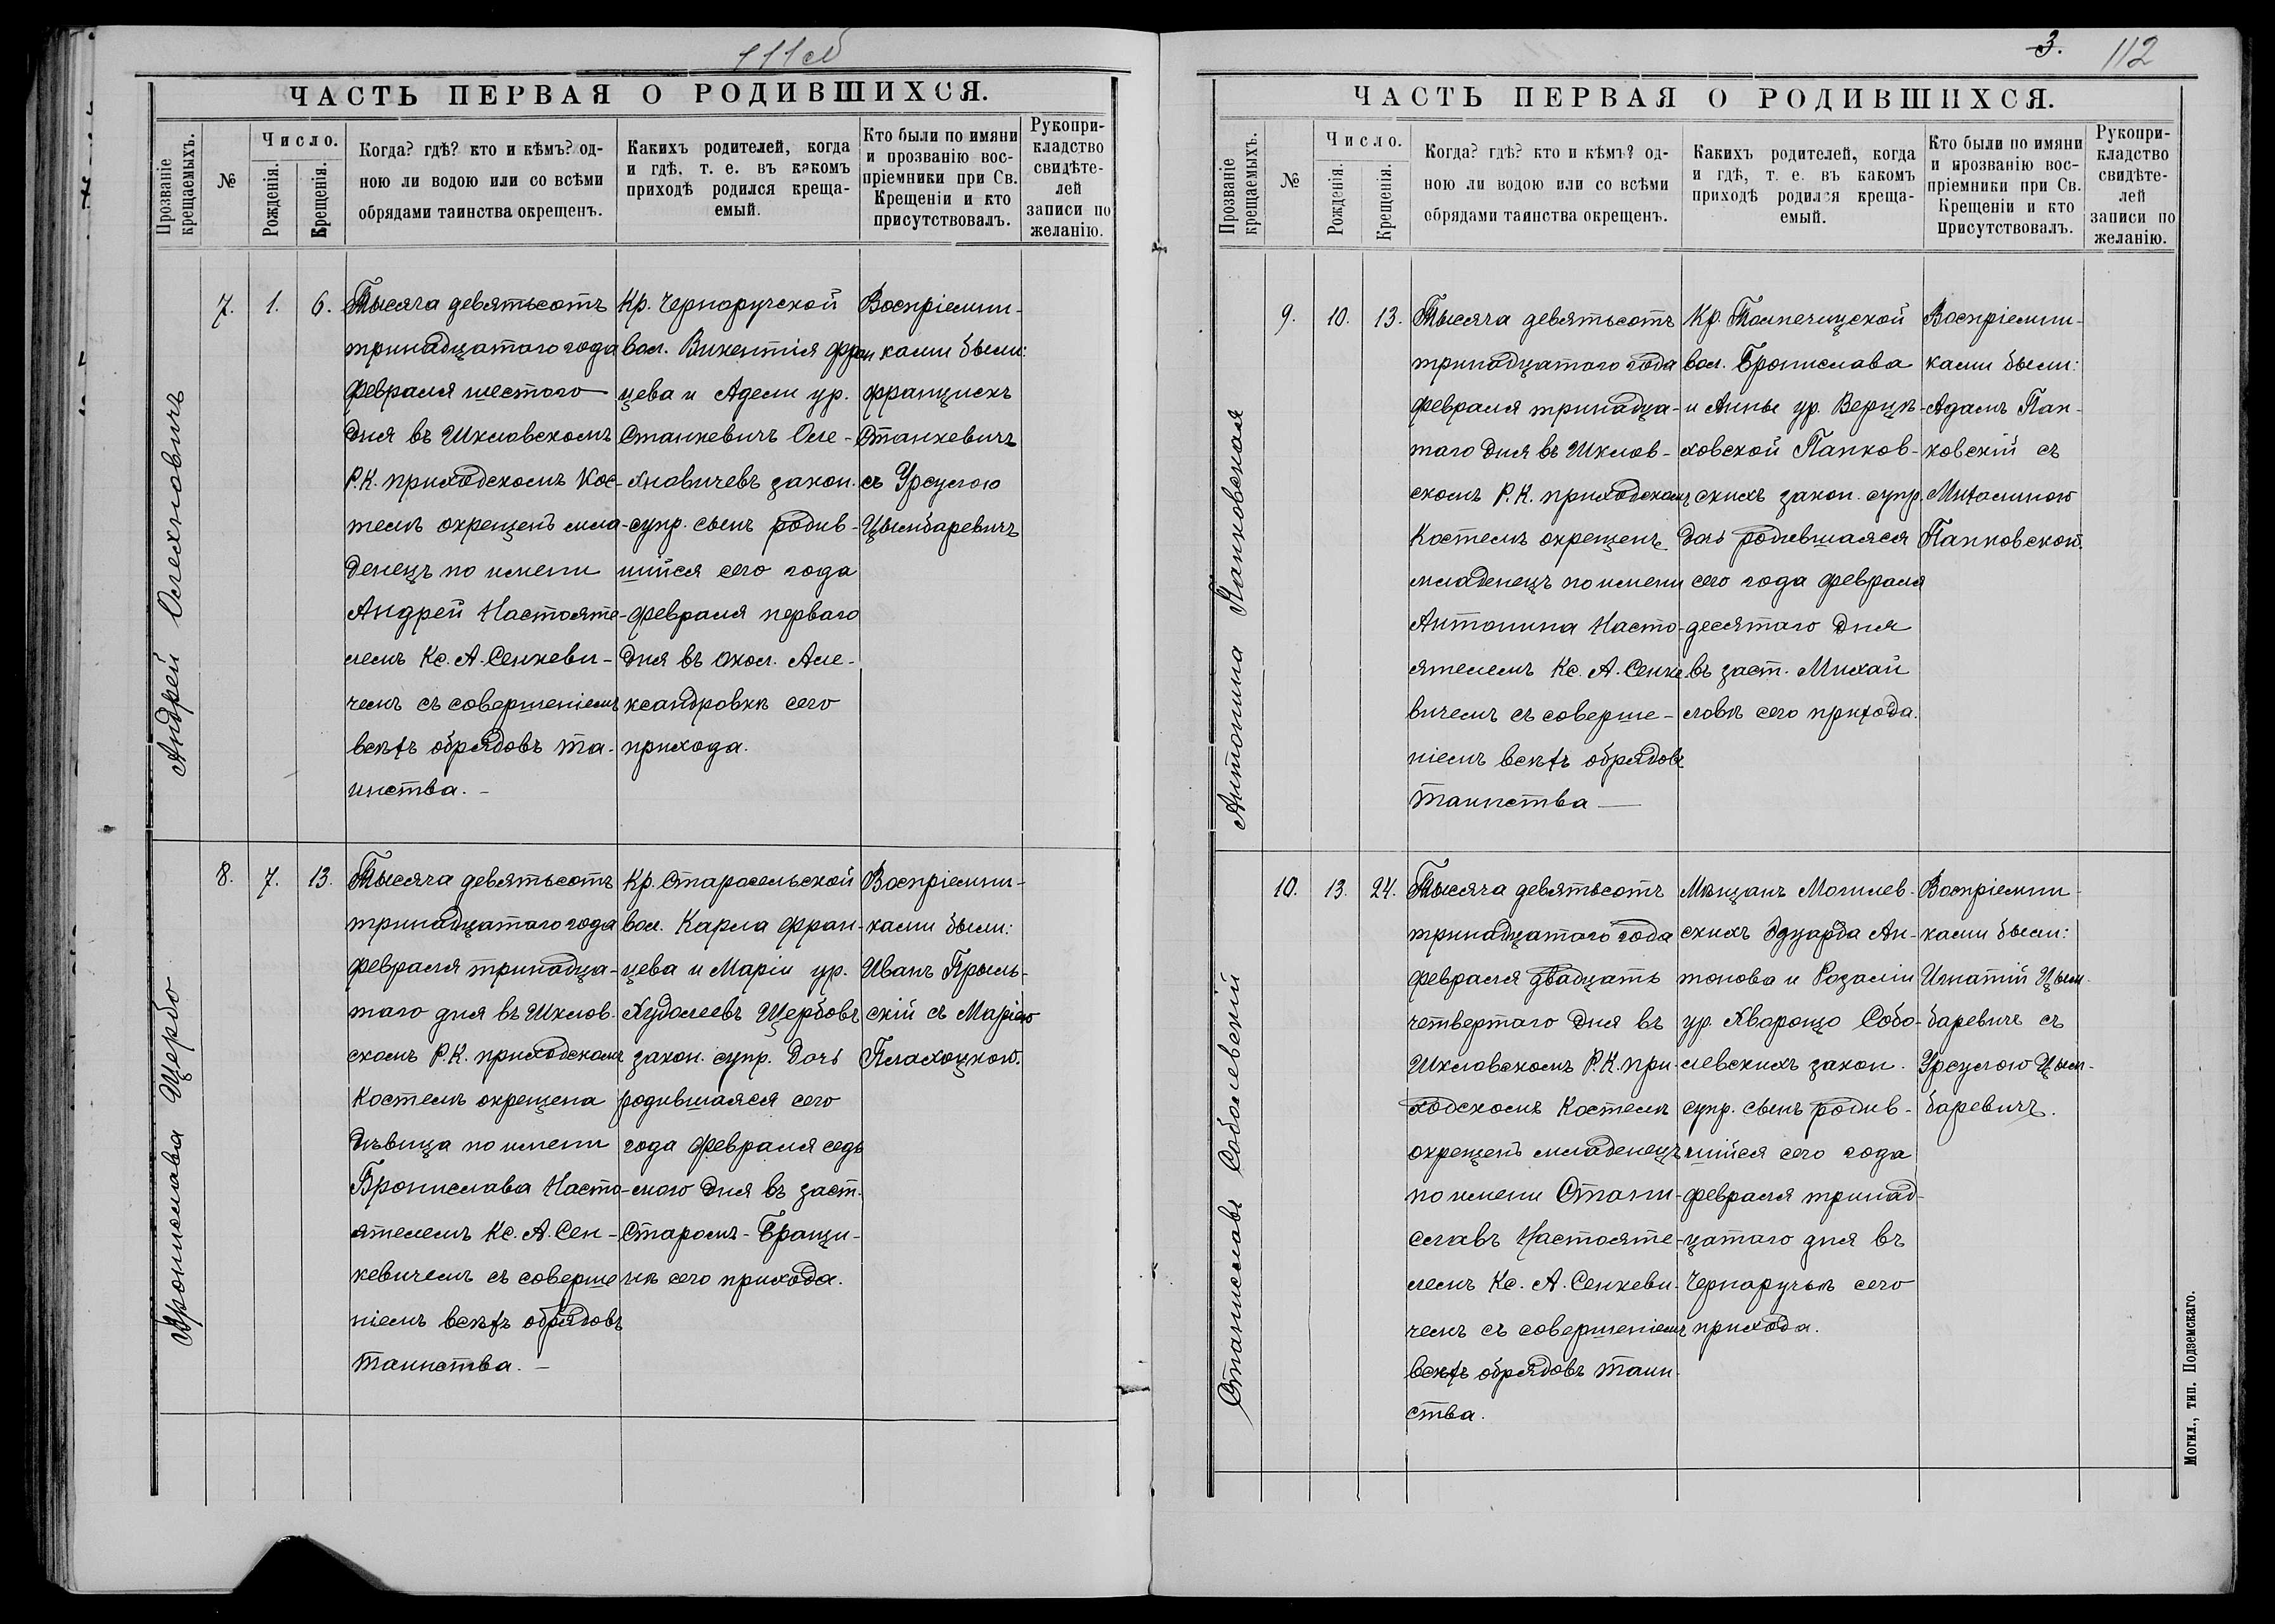 111об
ЧАСТЬ ПЕРВАЯ О РОДИВШИХСЯ.
Прозваніе крещаемыхъ.
№
Число.
Рожденія.
Крещенія.
Когда? гдѣ? кто и кѣмъ? од-
ною ли водою или со всѣми
обрядами таинства окрещенъ.
Какихъ родителей, когда
и гдѣ, т. е. въ какомъ
приходѣ родился креща-
емый.
Кто были по имяни
и прозванію вос-
пріемники при Св.
Крещеніи и кто
присутствовалъ.
Рукопри-
кладство
свидѣте-
лей
записи по
желанію.
Андрей Олехновичъ
7.
1.
6.
Тысяча девятьсотъ
тринадцатаго года
Февраля шестого
дня въ Шкловскомъ
Р.К. приходскомъ Кос-
телѣ окрещенъ мла-
денецъ по имени
Андрей Настояте-
лемъ Кс. А. Сенкеви-
чемъ съ совершеніемъ
всѣхъ обрядовъ та-
инства. –
Кр. Черноручской
вол. Викентія Фран
цева и Адели ур.
Станкевичъ Оле-
хновичевъ закон.
супр. сынъ родив-
шійся сего года
Февраля перваго
дня въ окол. Але-
ксандровкѣ сего
прихода.
Воспріемни-
ками были:
Францискъ
Станкевичъ
съ Урсулою
Цымбаревичъ
Бронислава Щербо
8.
7.
13.
Тысяча девятьсотъ
тринадцатаго года
Февраля тринадца-
таго дня въ Шклов-
скомъ Р.К. приходскомъ
Костелѣ окрещена
дѣвица по имени
Бронислава Насто-
ятелемъ Кс. А. Сен-
кевичемъ съ соверше
ніемъ всѣхъ обрядовъ
таинства. –
Кр. Старосельской
вол. Карла Фран-
цева и Маріи ур.
Худолеевъ Щербовъ
закон. супр. дочь
родившаяся сего
года Февраля седь
мого дня въ заст.
Старомъ-Бращи-
нѣ сего прихода.
Воспріемни-
ками были:
Иванъ Прыль-
скій съ Маріею
Плахоцкою.
3. 112
ЧАСТЬ ПЕРВАЯ О РОДИВШИХСЯ.
Прозваніе крещаемыхъ.
№
Число.
Рожденія.
Крещенія.
Когда? гдѣ? кто и кѣмъ? од-
ною ли водою или со всѣми
обрядами таинства окрещенъ.
Какихъ родителей, когда
и гдѣ, т. е. въ какомъ
приходѣ родился креща-
емый.
Кто были по имяни
и прозванію вос-
пріемники при Св.
Крещеніи и кто
присутствовалъ.
Рукопри-
кладство
свидѣте-
лей
записи по
желанію.
Антонина Панковская
9.
10.
13.
Тысяча девятьсотъ
тринадцатаго года
Февраля тринадца-
таго дня въ Шклов-
скомъ Р.К. приходскомъ
Костелѣ окрещенъ
младенецъ по имени
Антонина Насто-
ятелемъ Кс. А. Сенке
вичемъ съ соверше-
ніемъ всѣхъ обрядовъ
таинства —
Кр. Толпечицской
вол. Бронислава
и Анны ур. Верцѣ-
ховской Панков-
скихъ закон. супр.
дочь родившаяся
сего года Февраля
десятаго дня
въ заст. Михай
ловѣ сего прихода.
Воспріемни-
ками были:
Адамъ Пан-
ковскій съ
Михалиною
Панковской.
Станиславъ Соболевскій
10.
13.
24.
Тысяча девятьсотъ
тринадцатаго года
Февраля двадцать
четвертаго дня въ
Шкловскомъ Р.К. при-
ходскомъ Костелѣ
окрещенъ младенецъ
по имени Стани-
славъ Настояте-
лемъ Кс. А. Сенкеви-
чемъ съ совершеніемъ
всѣхъ обрядовъ таин-
ства.
Мѣщанъ Могилев-
скихъ Эдуарда Ан-
тонова и Розаліи
ур. Хварощо Собо-
левскихъ закон.
супр. сынъ родив-
шійся сего года
Февраля тринад-
цатаго дня въ
Черноручьѣ сего
прихода.
Воспріемни-
ками были:
Игнатій Цым-
баревичъ съ
Урсулою Цым-
баревичъ.
Могил., тип. Подземскаго.